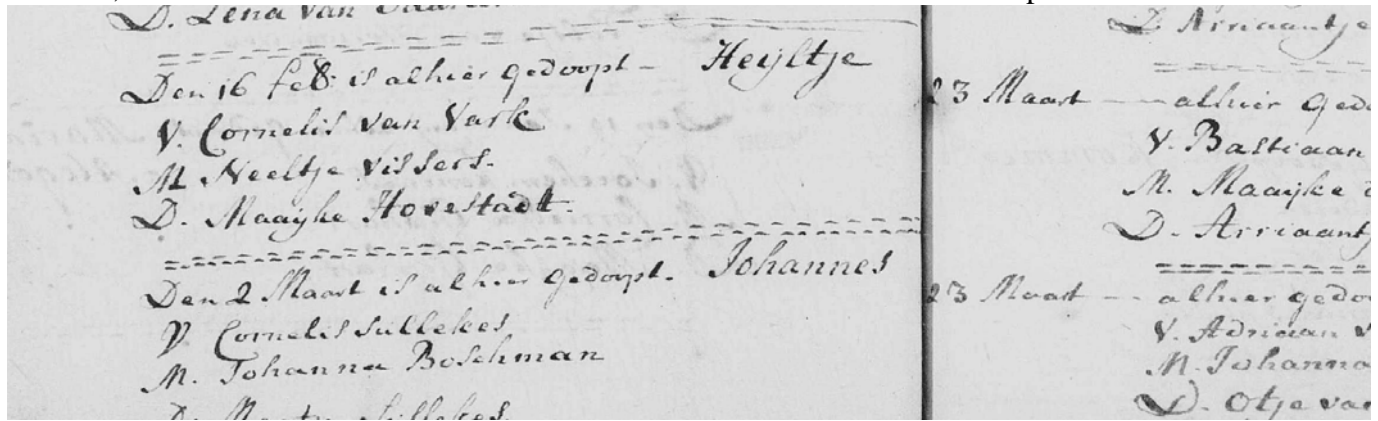 D. Lena van
Den 16 feb: is alhier gedoopt - Heyltje
V. Cornelis van Vark
M Neeltje Vissers.
D. Maayke Hovestadt.
Den 2 Maart is alhier gedoopt. Johannes
V Cornelis Sullekes
M. Johanna Boschman
D. Sillekes
D Arriaantje
23 Maart - alhier gedo
V. Bastiaan
M. Maayke
D. Arriaantj
23 Maart - alhier gedo
V. Adriaan v
M. Johanna
D. Otje van